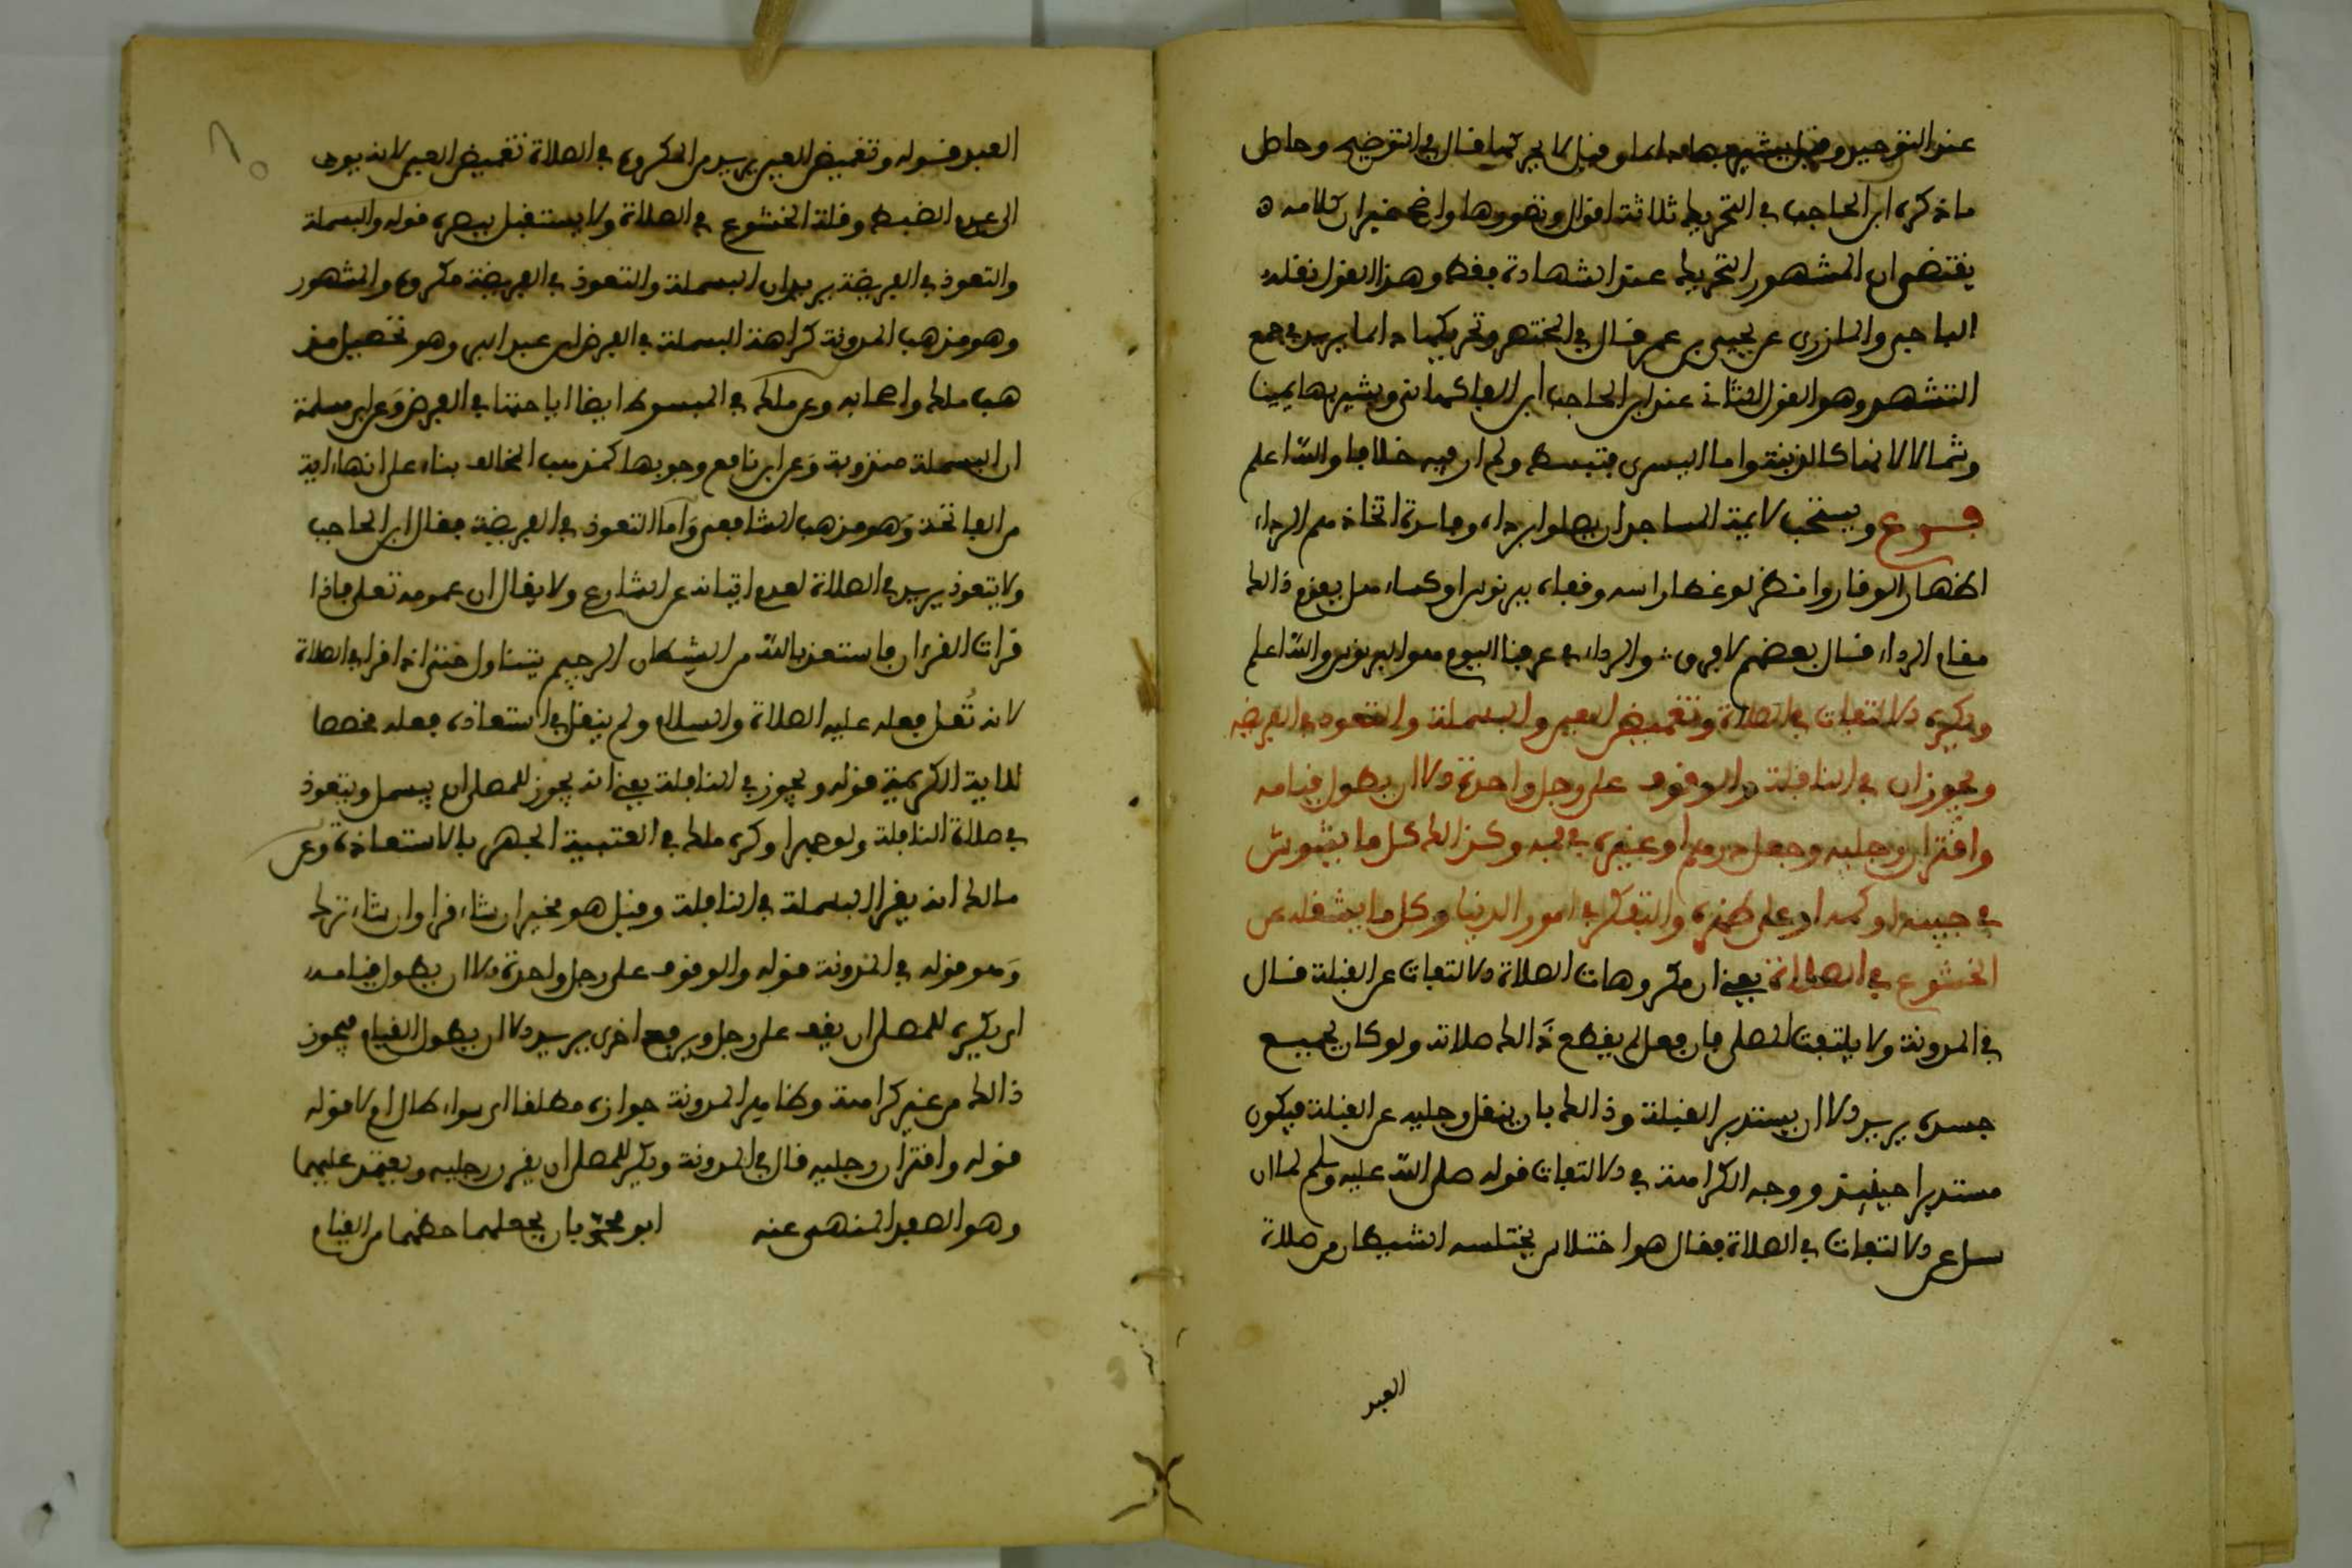 عند التوحيد وقيل يشير بها دايما وقيل لا يحركها قال في التوضيح وحاصل
ما ذكره ابن الحاجب في التحريك ثلاثة اقوال وتصورها واضح غير ان كلامه
يقتضى ان المشهور التحريك عند الشهادة فقط وهذا القول نقله
الباجي والمازري عن يحيى بن عمر قال في المختصر وتحريكها دايما يريد في جميع
التشهد وهو القول الثاني عند ابن الحاجب ابن الفاكهاني ويشير بها يمينا
وشمالا لانها كالمذبة واما اليسرى فتبسط ولم ار فيه خلافا والله اعلم
فرع ويستحب لايمة المساجد ان يصلوا برداء اتخاذهم الرداء
اظهار الوقار وانظر لو غطا راسه وقفاه ببرنوس او كساء هل يقوم ذالك
مقام الرداء قال بعضهم لا فرق والرداء في عرفنا اليوم هو البرنوس والله اعلم
ويكره الالتفات في الصلاة وتغميض العين والبسملة والتعوذ في الفريضة
ويجوزان في النافلة والوقوف على رجل واحدة الا ان يطول قيامه
واقتران رجليه وجعل درهم او غيره في فمه وكذالك كل ما يشوش
في جيبه او كمه او على ظهره والتفكر في امور الدنيا وكل ما يشغله عن
الخشوع في الصلاة يعني ان مكروهات الصلاة الالتفات عن القبلة قال
في المدونة ولا يلتفت المصلى فان فعل لم يقطع ذالك صلاته ولو كان بجميع
جسده يريد الا ان يستدبر القبلة وذالك بان ينقل رجليه عن القبلة فيكون
مستدبرا حينيذ ووجه الكراهة في الالتفات قوله صلى الله عليه وسلم لما ان
سيل عن الالتفات في الصلاة فقال هو اختلاس يختلسه الشيطان من صلاة
العبد
العبد قوله وتغميض العين يريد من المكروه في الصلاة تغميض العين لانه يودى
الى عدم الضبط وقلة الخشوع في الصلاة ولا يستقبل ببصره قوله والبسملة
والتعوذ في الفريضة يريد ان البسملة والتعوذ في الفريضة مكروه والمشهور
وهو مذهب المدونة كراهة البسملة في الفرض ابن عبد البر وهو تحصيل مذ
هب ملك واصحابه وعن ملك في المبسوط ايضا اباحتها في الفرض وعن ابن مسلمة
ان البسملة مندوبة وعن ابن نافع وجوبها كمذهب المخالف بناء على انها اية
من الفاتحة وهو مذهب الشافعي واما التعوذ في الفريضة فقال ابن الحاجب
ولا يتعوذ يريد في الصلاة لعدم اتيانه عن الشارع ولا يقال ان عموم قوله تعلى فاذا
قرات القرءان فاستعذ بالله من الشيطان الرجيم يتناول حتى اذا قرا في الصلاة
لانه نُقل فعله عليه الصلاة والسلام ولم ينقل في استعاذة فعله مخصصا
للاية الكريمة قوله ويجوز في النافلة يعني انه يجوز للمصلى ان يبسمل ويتعوذ
في صلاة النافلة ولو جهرا وكره ملك في العتبية الجهر بالاستعاذة وعن
مالك انه يقرا البسملة في النافلة وقيل هو مخير ان شاء قرا وان شاء ترك
وهو قوله في المدونة قوله والوقوف على رجل واحدة الا ان يطول قيامه
اى يكره للمصلى ان يقف على رجل ويرفع اخرى يريد الا ان يطول القيام فيجوز
ذالك من غير كراهة وظاهر المدونة جوازه مطلقا اى سواء طال ام لا قوله
قوله واقتران رجليه قال في المدونة ويكره للمصلى ان يقرن رجليه ويعتمد عليهما
وهو الصفد المنهى عنه ابو محمد بان يجعلهما حظهما من القيام